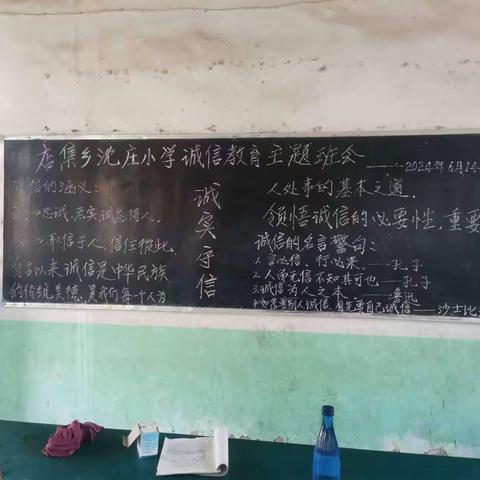 店集乡沈庄小学诚信教育主题班会——2024年6月14
诚信的涵义:
诚→忠诚,老实诚恳待人。
信→取信于人,信任彼此
自古以来诚信是中华民族
的传统美德,是我们每个人为
诚实守信
人处事的基本之道。
领悟诚信的必要性,重要
诚信的名言警句:
1.言必信,行必果。——孔子
2.人而无信不知其可也——孔子
3.诚信为人之本——鲁迅
4.如果要别人诚信,首先要自己诚信——沙士比